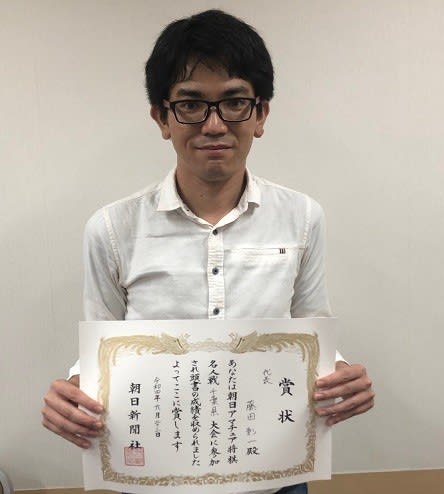 賞状
代表
藤田 彰一殿
あなたは朝日アマチュア将棋
名人戦 千葉県 大会に参加
され頭書の成績を収められました
よってここに賞します
朝日新聞社